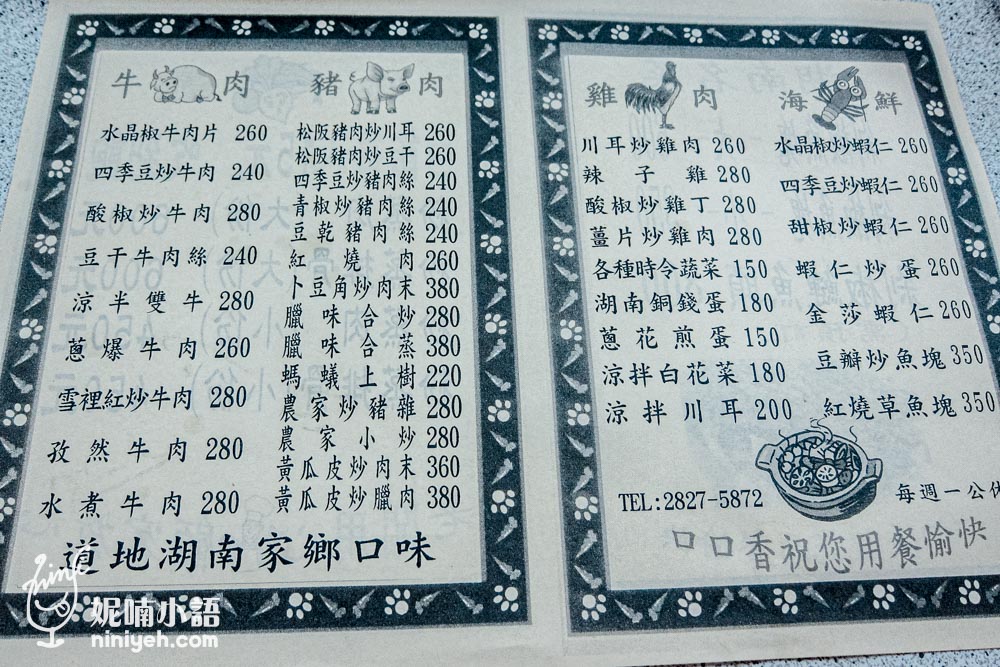 牛肉
水晶椒牛肉片 260
四季豆炒牛肉 240
酸椒炒牛肉 280
豆干牛肉絲 240
涼半雙牛 280
蔥爆牛肉 260
雪裡紅炒牛肉 280
孜然牛肉 280
水煮牛肉 280
豬肉
松阪豬肉炒川耳 260
松阪豬肉炒豆干 260
四季豆炒豬肉絲 240
青椒炒豬肉絲 240
豆乾豬肉絲 240
紅燒肉 260
卜豆角炒肉末 380
臘味合炒 280
臘味合蒸 380
螞蟻上樹 220
農家炒豬雜 280
農家小炒 280
黃瓜皮炒肉末 360
黃瓜皮炒臘肉 380
道地湖南家鄉口味
雞肉
川耳炒雞肉 260
辣子雞 280
酸椒炒雞丁 280
薑片炒雞肉 280
各種時令蔬菜 150
湖南銅錢蛋 180
蔥花煎蛋 150
涼拌白花菜 180
涼拌川耳 200
海鮮
水晶椒炒蝦仁 260
四季豆炒蝦仁 260
甜椒炒蝦仁 260
蝦仁炒蛋 260
金莎蝦仁 260
豆瓣炒魚塊 350
紅燒草魚塊 350
TEL:2827-5872
每週一公休
口口香祝您用餐愉快
妮喃小語
niniyeh.com